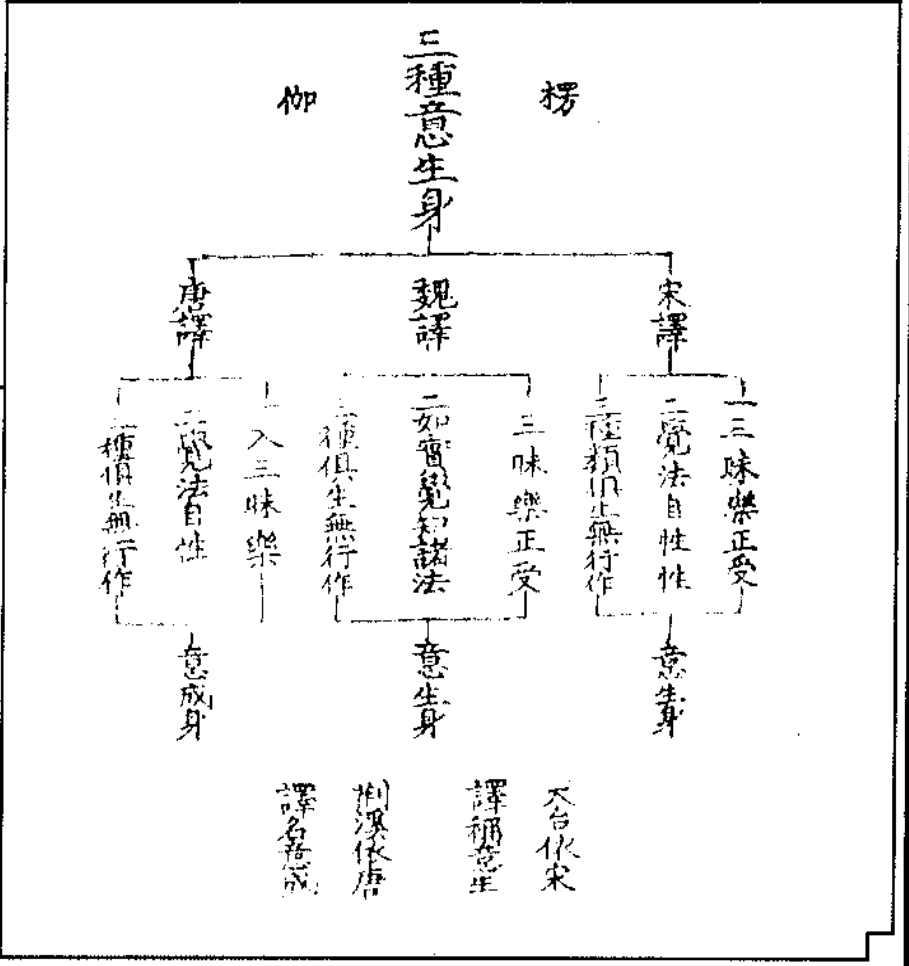 楞
三種意生身
伽
宋譯
魏譯
唐譯
一三昧樂正受
二覺法自性性
三種類俱生無行作
意生身
三昧樂正受
二如實覺知諸法
三種俱生無行作
意生身
一入三昧樂
二覺法自性
三種俱生無行作
意成身
天台依宋
譯稱意生
荊溪依唐
譯名意成